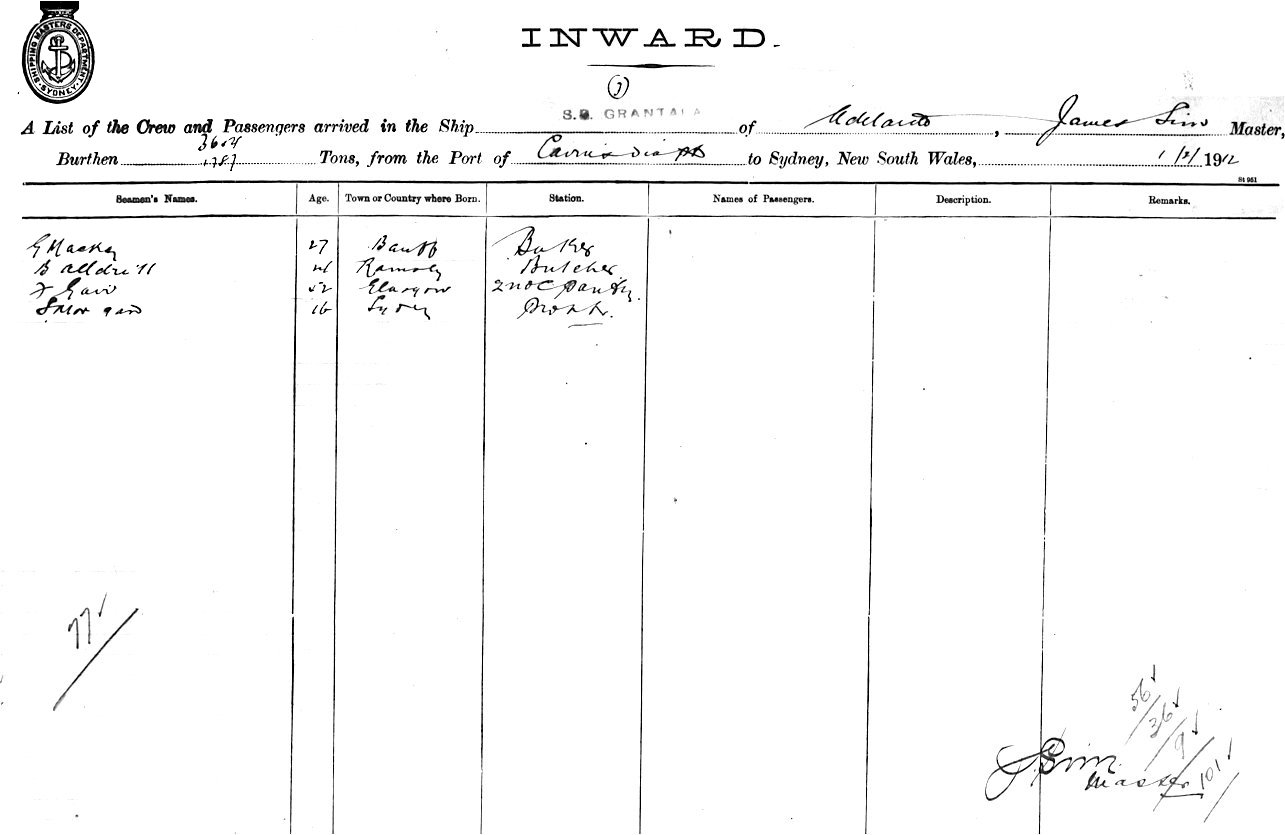 SHIPPING MASTERS DEPARTMENT. SYDNEY.
INWARD.
(1)
A List of the Crew and Passengers arrived in the Ship S.S. GRANTALA of Adelaide, James Sim Master,
Burthen 3654 1787 Tons, from the Port of Cairns via to Sydney, New South Wales, 1/2/1912
St 951
Seamen's Names. Age. Town or Country where Born. Station. Names of Passengers. Description. Remarks.
G Mackay 27 Banff Baker
B Butcher
F Glasgow 2nd Pantry
16 Sydney
77
56
36
9
101
J Sim
Master